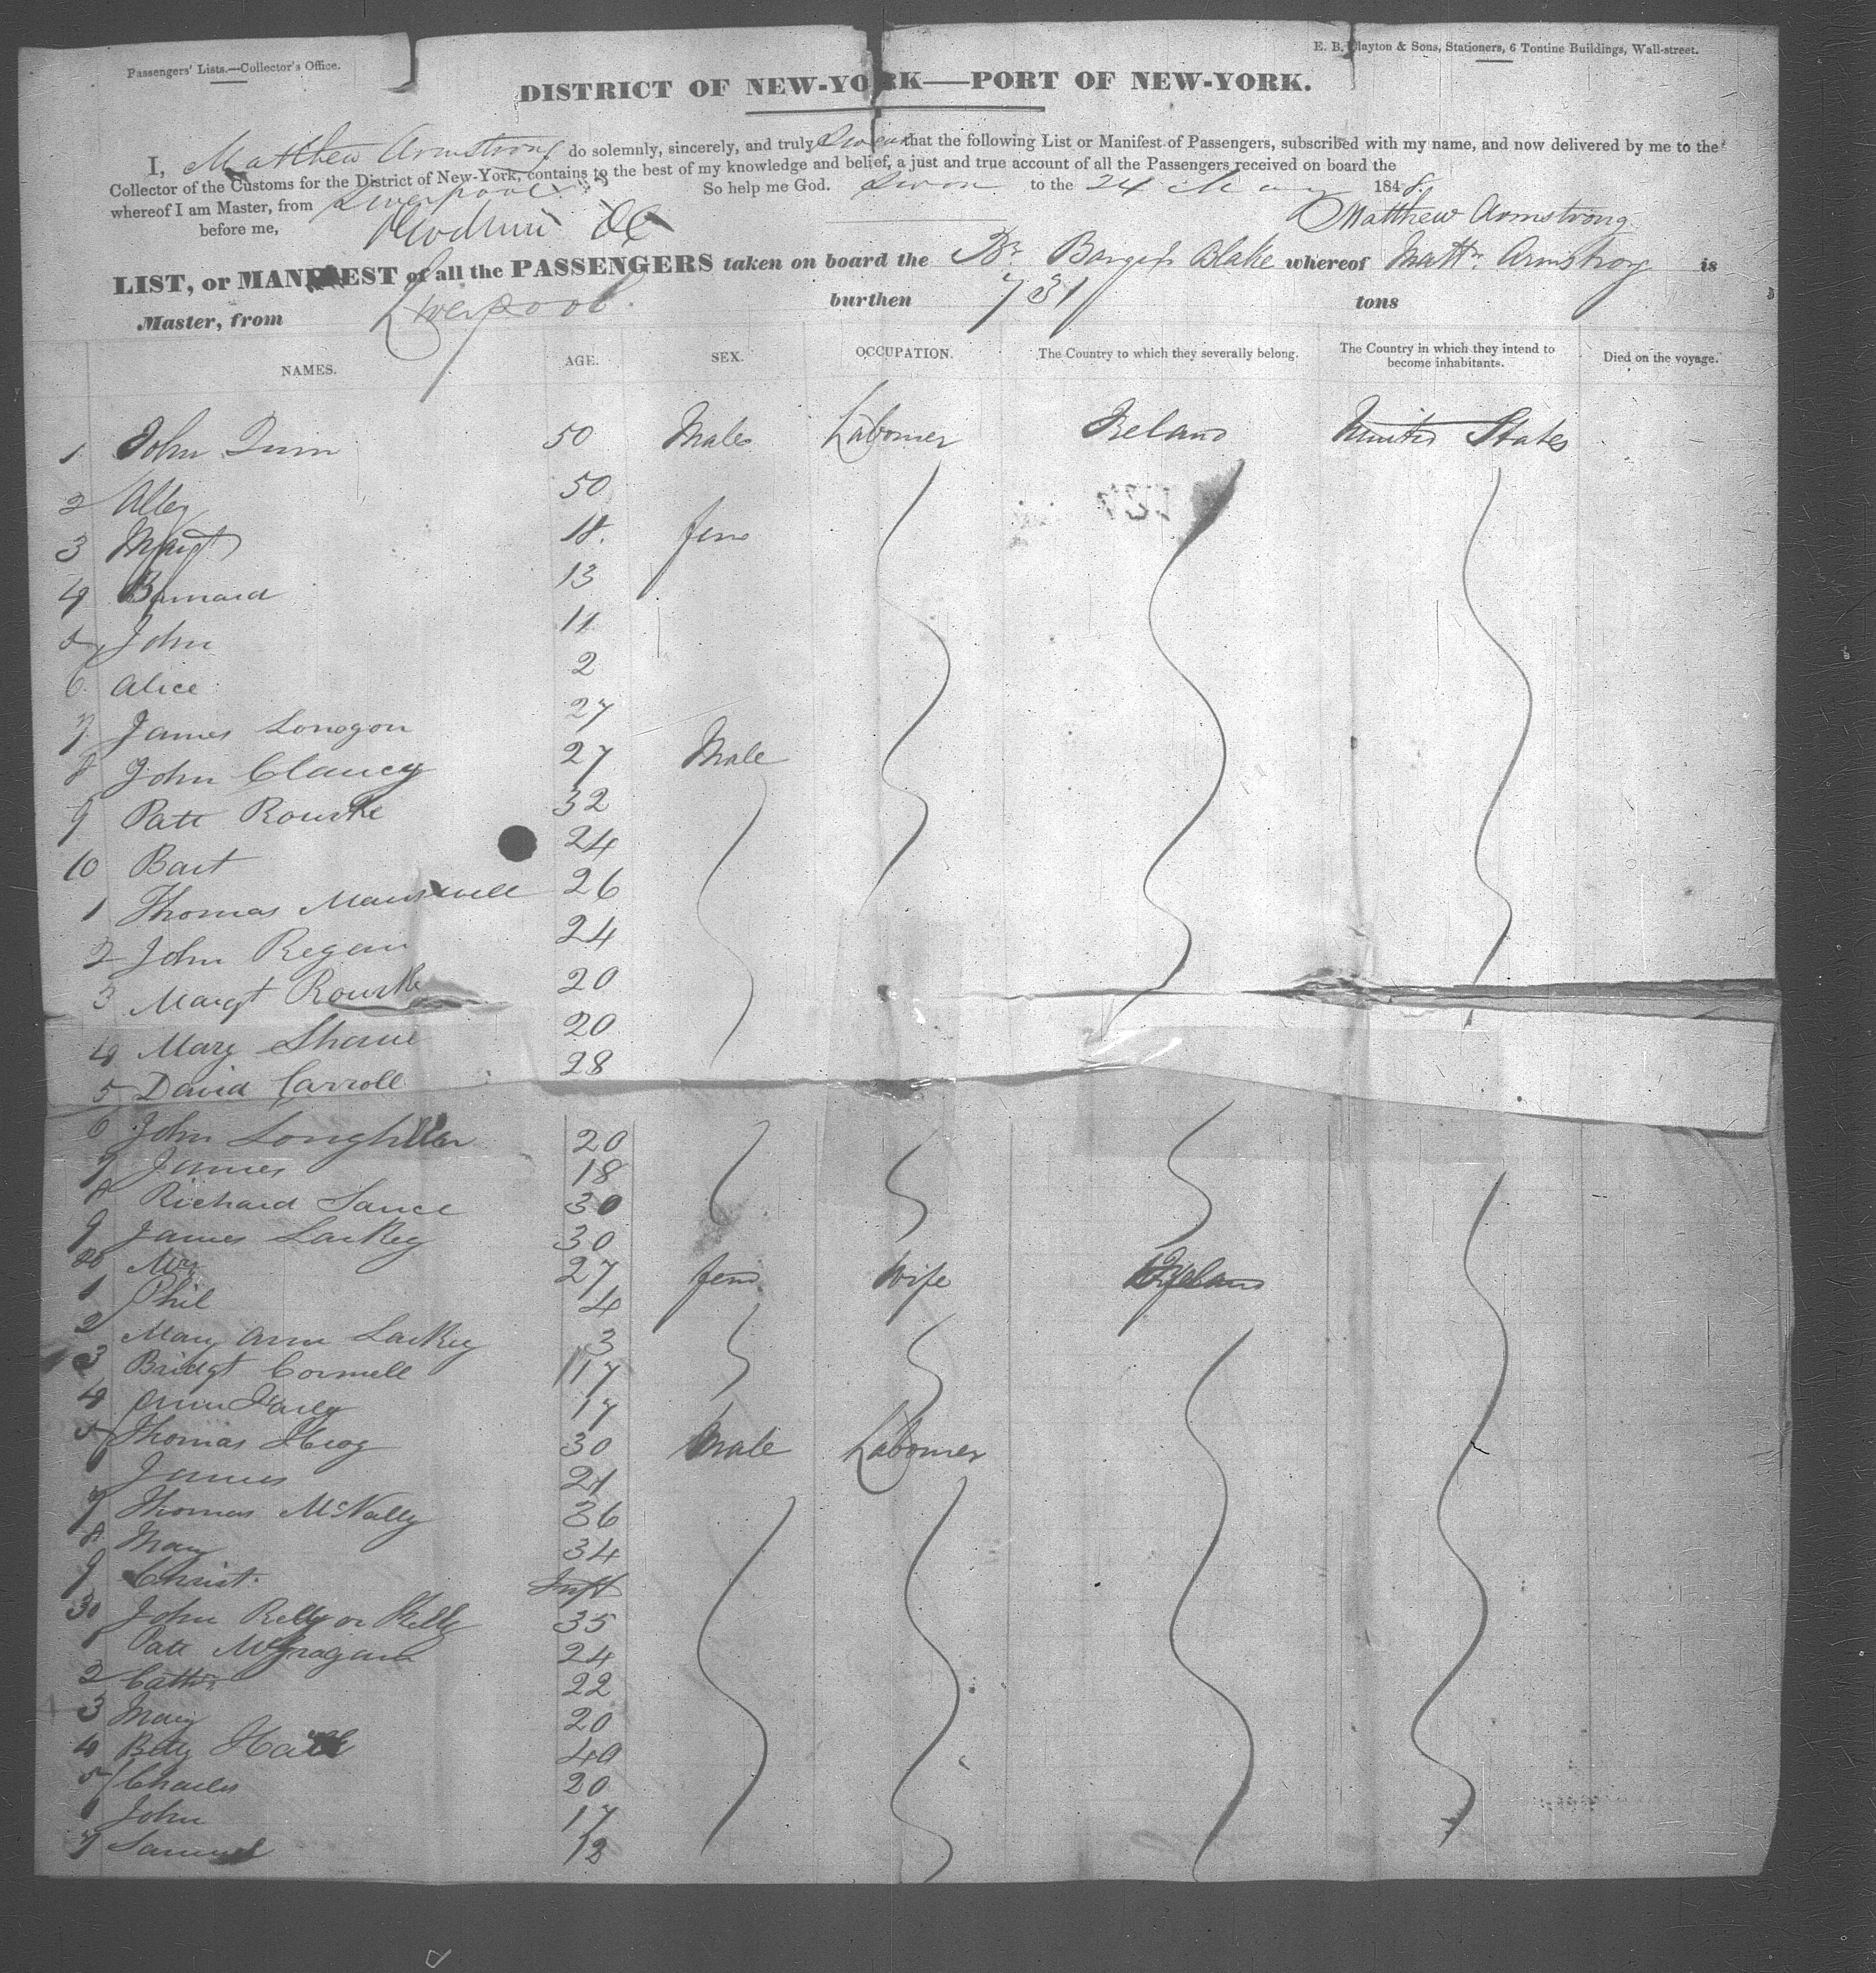 Passengers' Lists.—Collector's Office.
E. B. Clayton & Sons, Stationers, 6 Tontine Buildings, Wall-street.
DISTRICT OF NEW-YORK—PORT OF NEW-YORK.
I, Matthew Armstrong do solemnly, sincerely, and truly Swear that the following List or Manifest of Passengers, subscribed with my name, and now delivered by me to the
Collector of the Customs for the District of New-York, contains to the best of my knowledge and belief, a just and true account of all the Passengers received on board the
whereof I am Master, from Liverpool So help me God. Sworn to the 24 May 1848.
before me, Matthew Armstrong
LIST, or MANIFEST of all the PASSENGERS taken on board the Br Barque Blake whereof Mattw. Armstrong is
Master, from Liverpool burthen 731 tons
NAMES. AGE. SEX. OCCUPATION. The Country to which they severally belong. The Country in which they intend to become inhabitants. Died on the voyage.
1 John Quin 50 Males Labourer Ireland United States
2 Alley 50
3 Margt 18 fem
4 Barnard 13
5 John 11
6 Alice 2
7 James Lonogon 27
8 John Clancy 27 Male
9 Patt Rourke 32
10 Bart 24
1 Thomas 26
2 John Regan 24
3 Margt Rourke 20
4 Mary Shaue 20
5 David Carroll 28
6 John 20
7 James 18
8 Richard Lance 30
9 James Larkey 30
20 Mry 27 fem Wife Ireland
1 Phil 4
2 Mary Ann Larkey 3
3 Bridgt Cormell 17
4 Ann 17
5 Thomas 30 Male Labourer
6 James 21
7 Thomas McNally 36
8 Mary 34
9 Christ. Inft
30 John Relly or Kelly 35
1 Patt 24
2 Cathn 22
3 Mary 20
4 Betty 40
5 Charles 20
6 John 17
7 Samuel 12